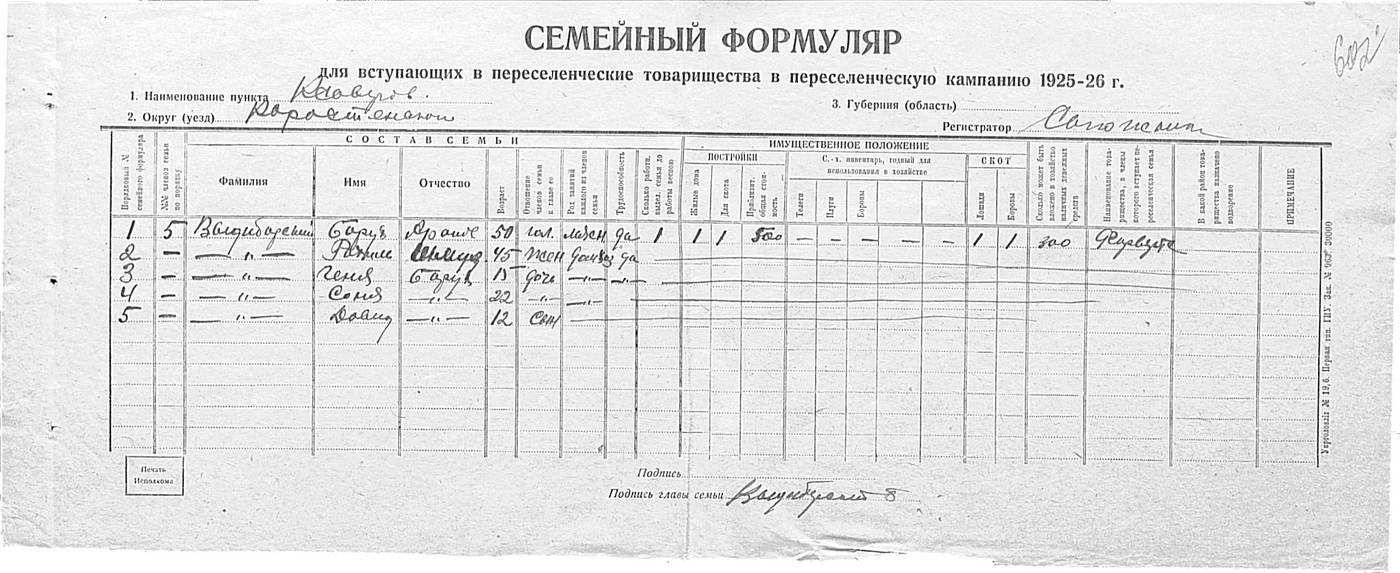 602
СЕМЕЙНЫЙ ФОРМУЛЯР
для вступающих в переселенческие товарищества в переселенческую кампанию 1925-26 г.
1. Наименование пункта
3. Губерния (область)
2. Округ (уезд)
Регистратор
СОСТАВ СЕМЬИ
ИМУЩЕСТВЕННОЕ ПОЛОЖЕНИЕ
Порядковый № семейного формуляра
№№ членов семьи по порядку
Фамилия
Имя
Отчество
Возраст
Отношение членов семьи к главе ее
Род занятий каждого из членов семьи
Трудоспособность
Сколько работн. выдел. семья до работы весною
ПОСТРОЙКИ
Жилые дома
Для скота
Приблизит. общая стоимость
С.-х. инвентарь, годный для использования в хозяйстве
Телеги
Плуги
Бороны
СКОТ
Лошади
Коровы
Сколько может быть вложено в хозяйство наличных денежных средств
Наименование товарищества, в члены которого вступает переселенческая семья
В какой район товарищества назначено водворение
ПРИМЕЧАНИЕ
1 5 Барух 50 гол. да 1 1 1 500 — — — — — — 1 1 300
2 — — " — 45 жен да
3 — — " — Геня Барух 15 дочь — " — — " —
4 — — " — Соня — " — 22 — " — — " —
5 — — " — Довид — " — 12 сын
Печать
Исполкома
Подпись
Подпись главы семьи
Укрголовліт № 19,6. Первая тип. ГИУ Зак. № 963. 30000